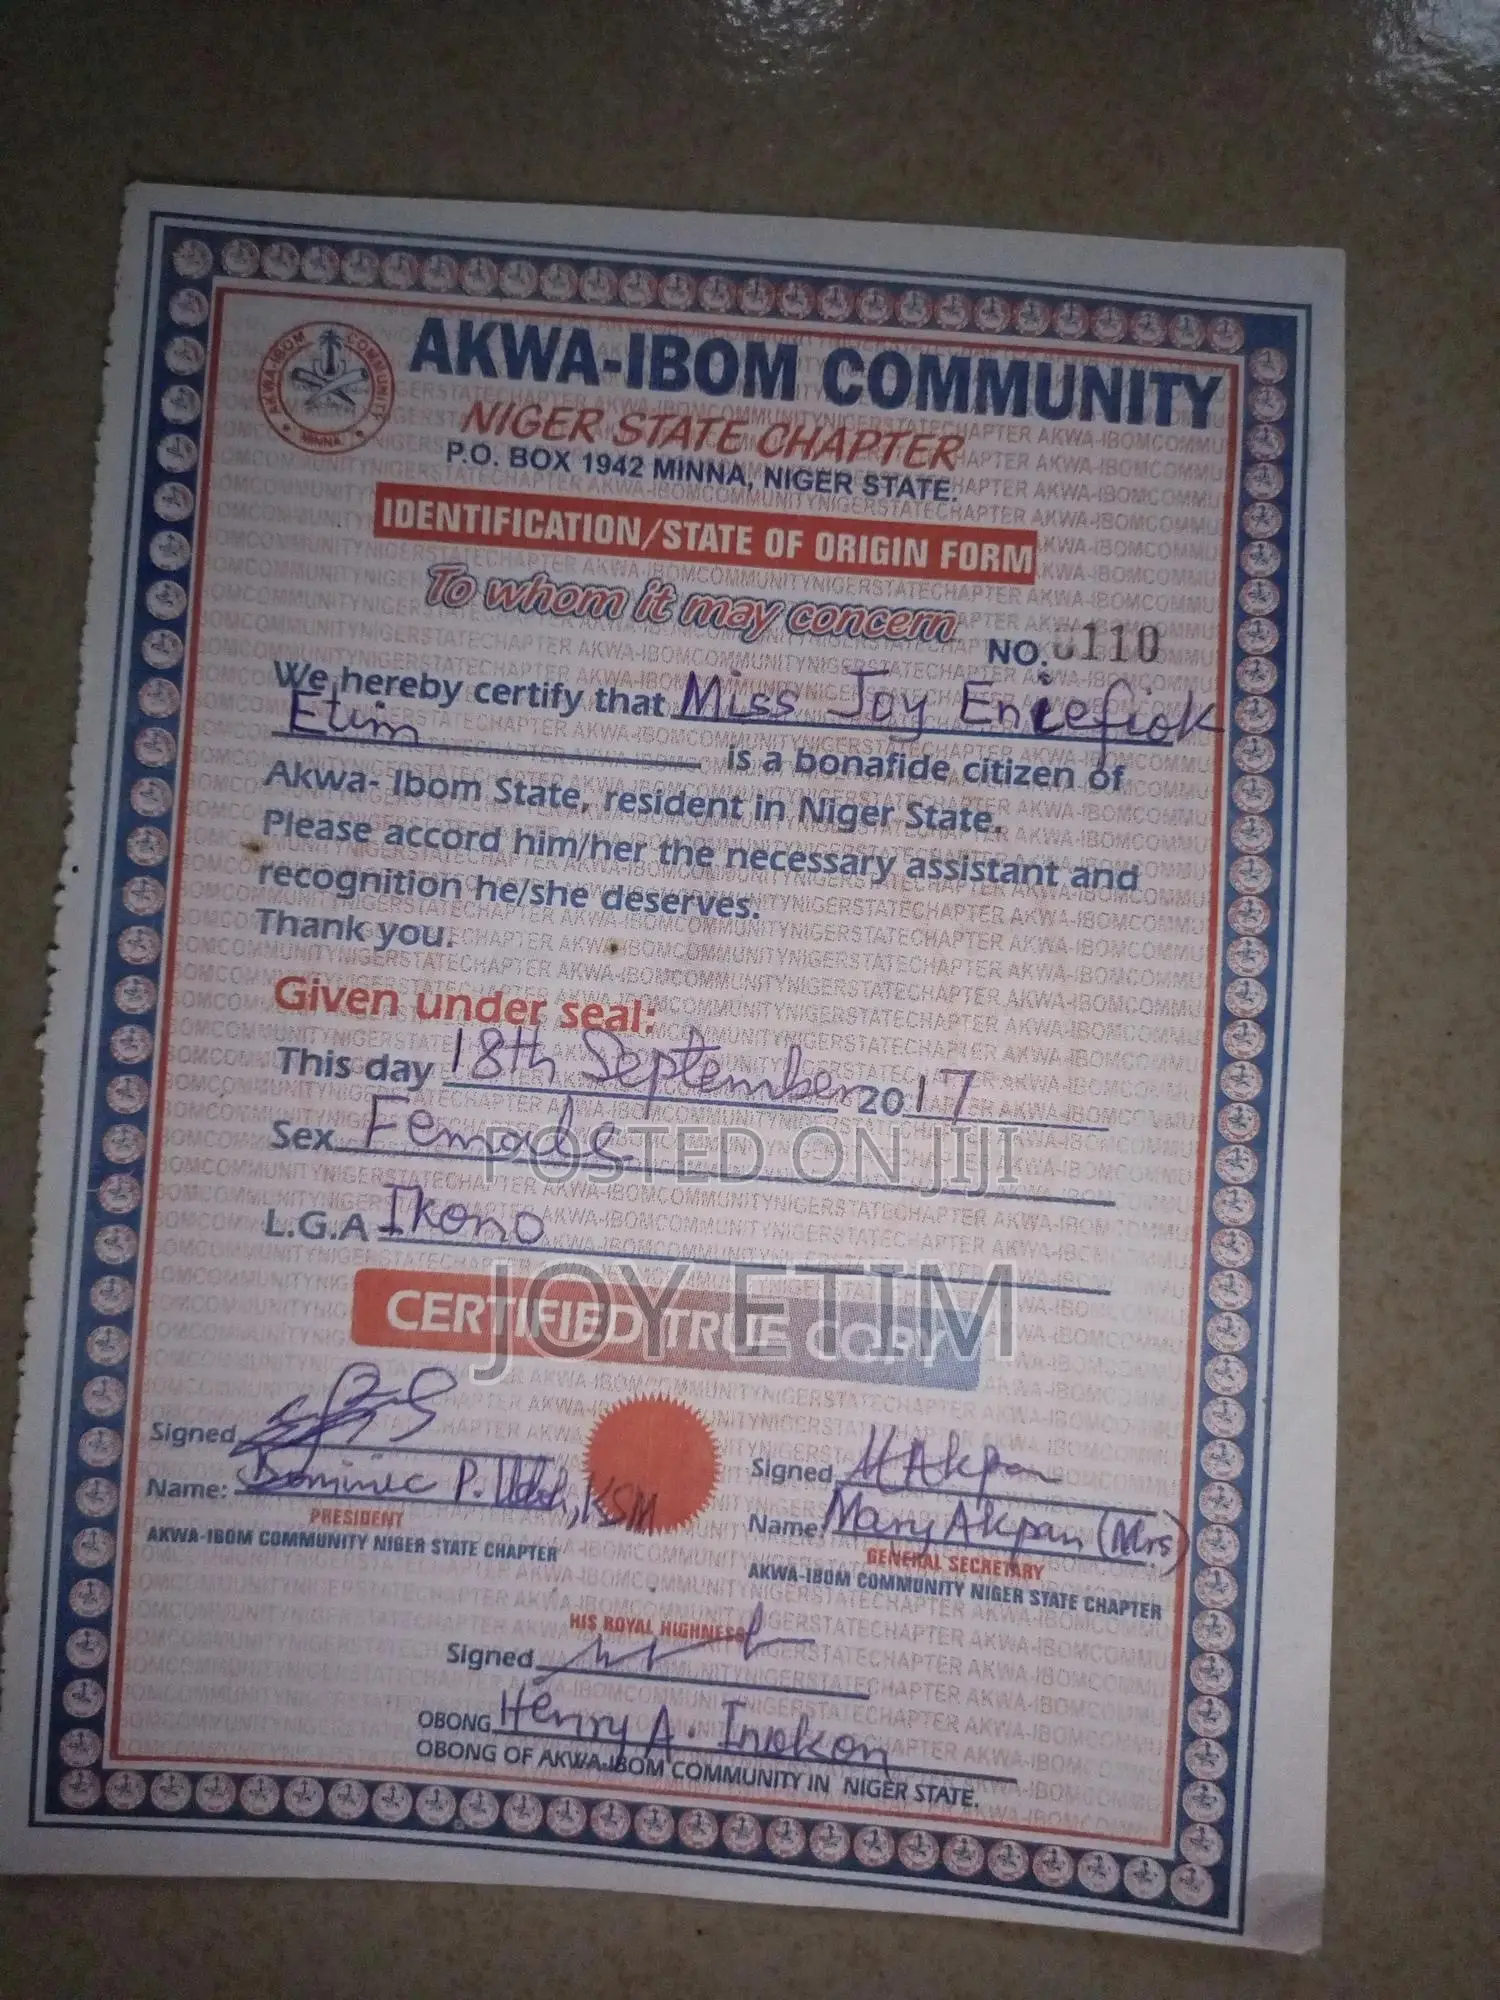 AKWA-IBOM COMMUNITY
NIGER STATE CHAPTER
P.O. BOX 1942 MINNA, NIGER STATE.
AKWA-IBOM COMMUNITY
MINNA
IDENTIFICATION/STATE OF ORIGIN FORM
To whom it may concern
NO. 0110
We hereby certify that Miss Joy Eniefiok
Etim is a bonafide citizen of
Akwa- Ibom State, resident in Niger State.
Please accord him/her the necessary assistant and
recognition he/she deserves.
Thank you.
Given under seal:
This day 18th September 2017
Sex Female
POSTED ON JIJI
L.G.A Ikono
JOY ETIM
CERTIFIED TRUE COPY
Signed
Name: Dominic P. Udoh, KSM
PRESIDENT
AKWA-IBOM COMMUNITY NIGER STATE CHAPTER
Signed MAkpan
Name: Mary Akpan (Mrs)
GENERAL SECRETARY
AKWA-IBOM COMMUNITY NIGER STATE CHAPTER
HIS ROYAL HIGHNESS
Signed
OBONG Henry A. Inokon
OBONG OF AKWA-IBOM COMMUNITY IN NIGER STATE.